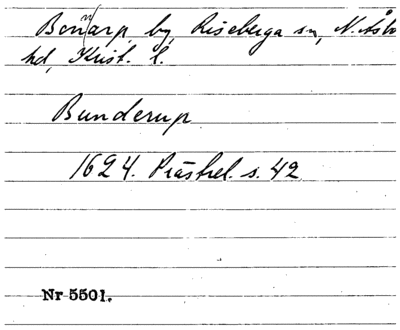 Bonnarp, by, Riseberga sn, N. Åsbo
hd, Krist. l.
Bunderup
1624. Prästrel. s. 42
Nr 5501.